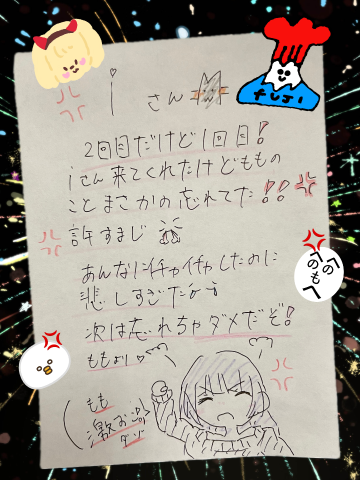 i さん
FUJI
2回目だけど1回目!
iさん来てくれたけどももの
ことまさかの忘れてた!!
許すまじ
あんなにイチャイチャしたのに
悲しすぎたよ
へのへのもへ
次は忘れちゃダメだぞ!
ももより
もも
激おこ
ダゾ